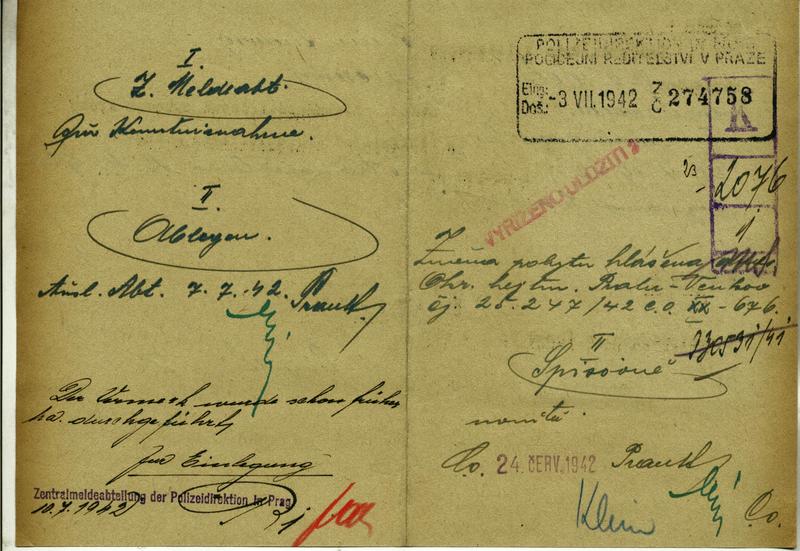 I.
Z. Meldeabt.
Zur Kenntnisnahme.
II
Ablegen.
Ausl. Abt. 7.7.42. Prantl
Der Vermerk wurde schon früher
ha. durchgeführt
zur Einlegung
Zentralmeldeabteilung der Polizeidirektion in Prag
10.7.1942
POLIZEIDIREKTION IN PRAG
POLICEJNÍ ŘEDITELSTVÍ V PRAZE
Eing.:
Doš.:
-3 VII. 1942
Z
C
274758
K
VYŘÍZENO ULOŽITI
2076
I
Změna pobytu hlášena
Okr. hejtm. Praha-Venkov
čj. 25.247/42 č.o. XX - 676.
II
Spisovně
Co. 24. ČERV. 1942 Prantl
Klein
Co.